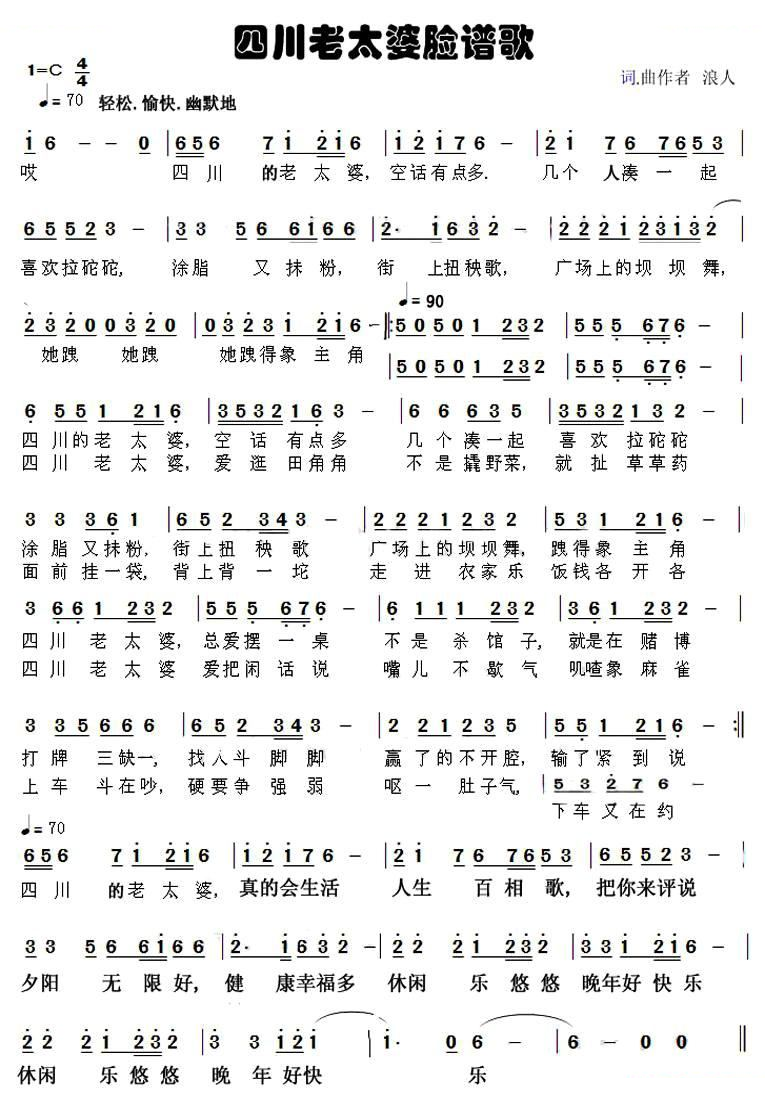 四川老太婆脸谱歌
1=C 4/4
词.曲作者 浪人
♩=70 轻松.愉快.幽默地
i 6 － － 0 | 6 5 6 7 i 2 i 6 | i 2 i 7 6 － | 2 i 7 6 7 6 5 3 |
哎 四川 的老太婆, 空话有点多. 几个 人凑一起
6 5 5 2 3 － | 3 3 5 6 6 i 6 | 2· i 6 3 2 | 2 2 2 i 2 3 i 3 2 |
喜欢拉砣砣, 涂脂 又抹粉, 街 上扭秧歌, 广场上的坝坝舞,
♩=90
2 3 2 0 0 3 2 0 | 0 3 2 3 i 2 i 6 － ‖: 5 0 5 0 1 2 3 2 | 5 5 5 6 7 6 － |
她跩 她跩 她跩得象主角
| 5 0 5 0 1 2 3 2 | 5 5 5 6 7 6 － |
6 5 5 1 2 1 6 | 3 5 3 2 1 6 － | 6 6 6 3 5 | 3 5 3 2 1 3 2 |
四川的老太婆, 空话有点多 几个凑一起 喜欢拉砣砣
四川 老太婆, 爱逛田角角 不是撬野菜, 就扯草草药
3 3 3 3 6 1 | 6 5 2 3 4 3 － | 2 2 2 2 1 2 3 2 | 5 5 1 2 1 6 － |
涂脂又抹粉, 街上扭秧歌 广场上的坝坝舞, 跩得象主角
面前挂一袋, 背上背一坨 走进农家乐 饭钱各开各
3 6 6 1 2 3 2 | 5 5 5 6 7 6 － | 6 1 1 1 2 3 2 | 3 6 1 2 1 6 － |
四川老太婆, 总爱摆一桌 不是杀馆子, 就是在赌博
四川老太婆 爱把闲话说 嘴儿不歇气 叽喳象麻雀
3 3 5 6 6 6 | 6 5 2 3 4 3 － | 2 2 2 1 2 3 5 | 5 5 1 2 1 6 － :‖
打牌三缺一, 找人斗脚脚 赢了的不开腔, 输了紧到说
上车斗在吵, 硬要争强弱 呕一肚子气,
| 5 3 2 7 6 －
下车又在约
♩=70
6 5 6 7 i 2 i 6 | i 2 i 7 6 － | 2 i 7 6 7 6 5 3 | 6 5 5 2 3 － |
四川 的老太婆, 真的会生活 人生百相歌, 把你来评说
3 3 5 6 6 i 6 6 | 2· i 6 3 2 － | 2 2 2 i 2 3 2 | 3 3 2 i 2 i 6 |
夕阳无限好, 健康幸福多 休闲乐悠悠 晚年好快乐
2 2 2 i 2 3 2 | 3 3 i 2 i | i· 0 6 | 6 － 0 0 |
休闲乐悠悠 晚年好快 乐